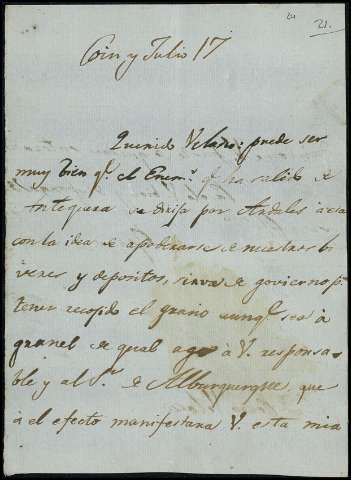 21.
Coin y Julio 17
Querido Velasco: puede ser
muy bien q.e el Enem.o q.e ha salido de
Antequera se dirija por Ardales à esa
con la idea de apoderarse de nuestros bi
veres y depositos, sirva de govierno p.a
tener recojido el grano aunq.e sea à
granel de qual ago à V. responsa-
ble y al S.r de Alburquerque que
à el efecto manifestara V. esta mia